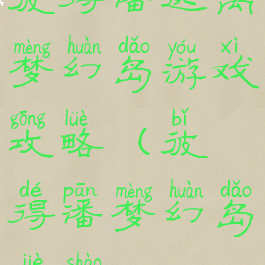 彼得潘逃离
mèng huàn dǎo yóu xì
梦幻岛游戏
gōng lüè bǐ
攻略（彼
dé pān mèng huàn dǎo
得潘梦幻岛
jiè shào